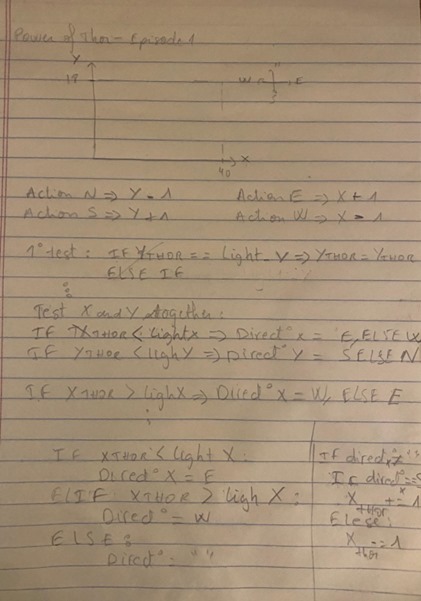 Power of Thor - Episode 1
Y
19
W E
X
40
Action N => Y - 1 Action E => X + 1
Action S => Y + 1 Action W => X - 1
1° test : IF YTHOR == Light_Y => YTHOR = YTHOR
ELSE IF
Test X and Y together :
IF XTHOR < Lightx => Direct° x = E, ELSE W
IF YTHOR < LighY => Direct° Y = S ELSE N
IF XTHOR > LighX => Direct° X = W, ELSE E
IF XTHOR < Light X :
Direct° X = E
ELIF XTHOR > Ligh X :
Direct° = W
ELSE :
Direct° = " "
IF direct°
IF direct° ==
X thor += 1
Else :
X thor -= 1